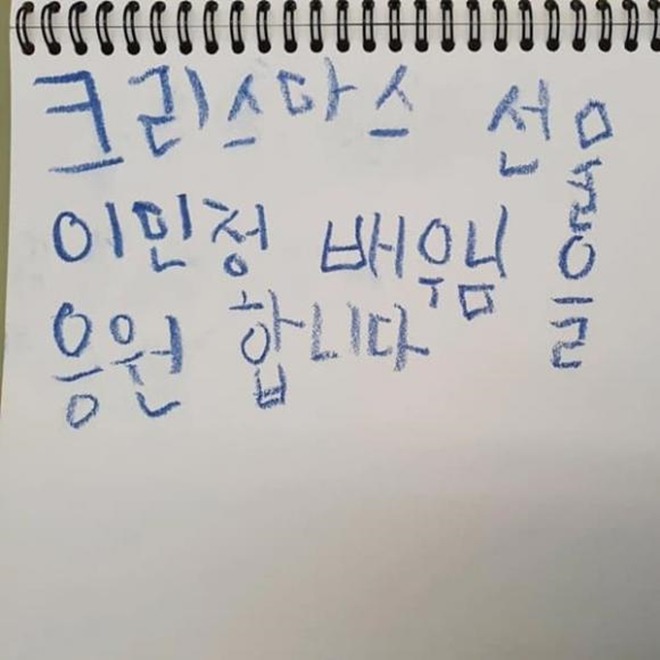 크리스다스 선물을
이민정 배우님
응원 합니다